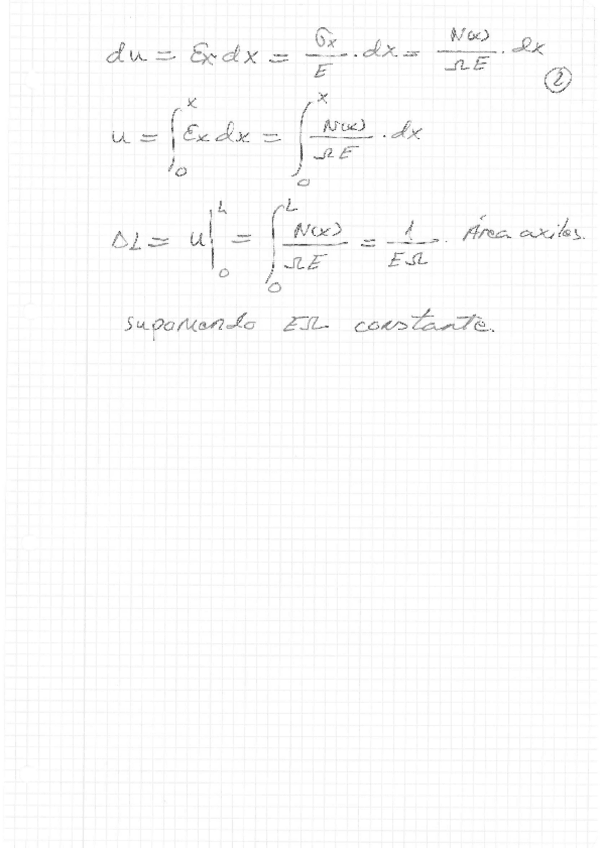 du = εx dx = σx/E · dx = N(x)/ΩE · dx
②
u = ∫₀ˣ εx dx = ∫₀ˣ N(x)/ΩE · dx
ΔL = u|₀ᴸ = ∫₀ᴸ N(x)/ΩE = 1/EΩ · Área axiles.
suponiendo EΩ constante.